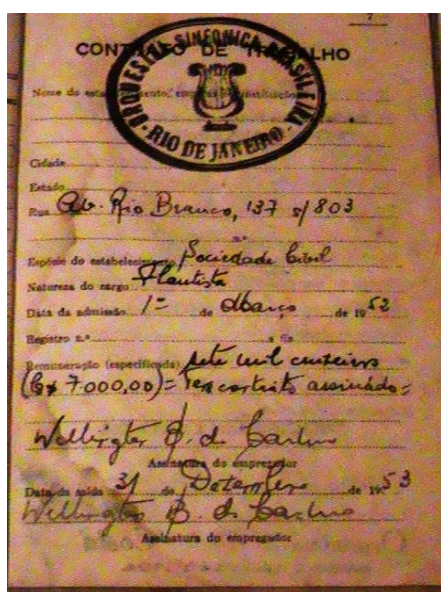 7
CONTRATO DE TRABALHO
ORQUESTRA SINFONICA BRASILEIRA
- RIO DE JANEIRO -
Nome do estabelecimento, empresa ou instituição
Cidade
Estado
Rua Av. Rio Branco, 137 s/803
n.º
Espécie do estabelecimento Sociedade Civil
Natureza do cargo Flautista
Data da admissão 1º de Março de 1952
Registro n.º a fls
Remuneração (especificada) sete mil cruzeiros
(Cr$ 7.000,00) = Tem contrato assinado =
Wellington B. de
Assinatura do empregador
Data da saída 31 de Dezembro de 1953
Wellington B. de
Assinatura do empregador